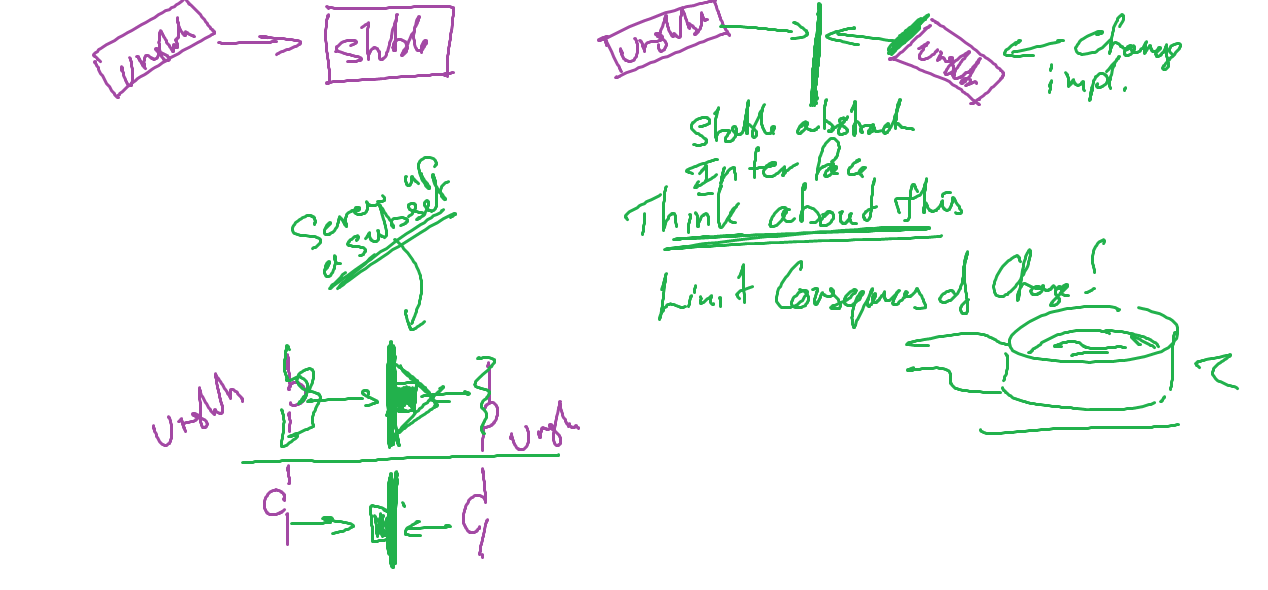 unstable
stable
unstable
unstable
Change
impl.
Stable abstract
Interface
Think about this
Limit Consequences of Change!
Screw up
a subset
Unstable